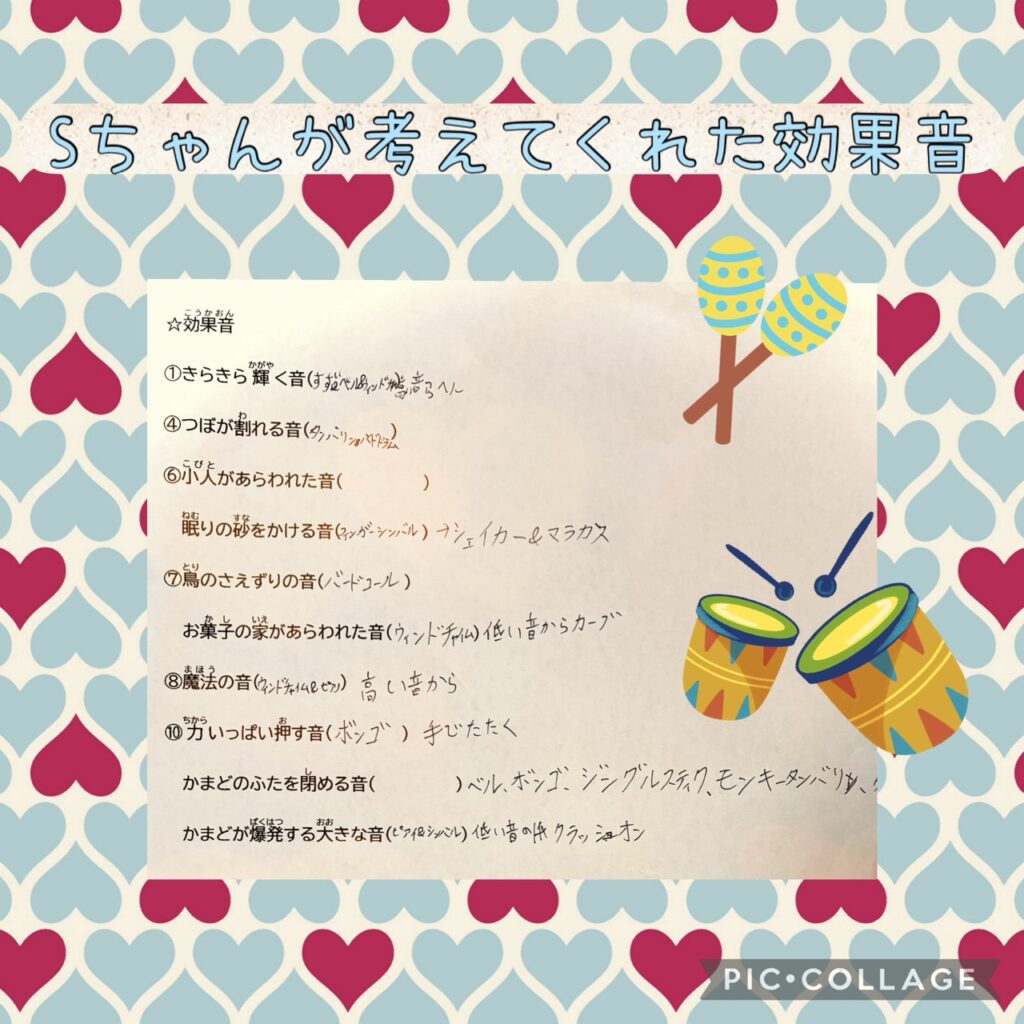 Sちゃんが考えてくれた効果音
こうかおん
☆効果音
かがや
①きらきら輝く音(
わ
④つぼが割れる音( )
こびと
⑥小人があらわれた音( )
ねむ すな
眠りの砂をかける音(フィンガーシンバル)→シェイカー&マラカス
とり
⑦鳥のさえずりの音(バードコール)
かし いえ
お菓子の家があらわれた音(ウィンドチャイム)低い音から
まほう
⑧魔法の音(ウィンドチャイム& )高い音から
ちから お
⑩力いっぱい押す音(ボンゴ)手でたたく
し
かまどのふたを閉める音( )ベル、ボンゴ、ジングルスティク、モンキータンバリン、
ばくはつ おお
かまどが爆発する大きな音( &シンバル)低い音の
PIC•COLLAGE